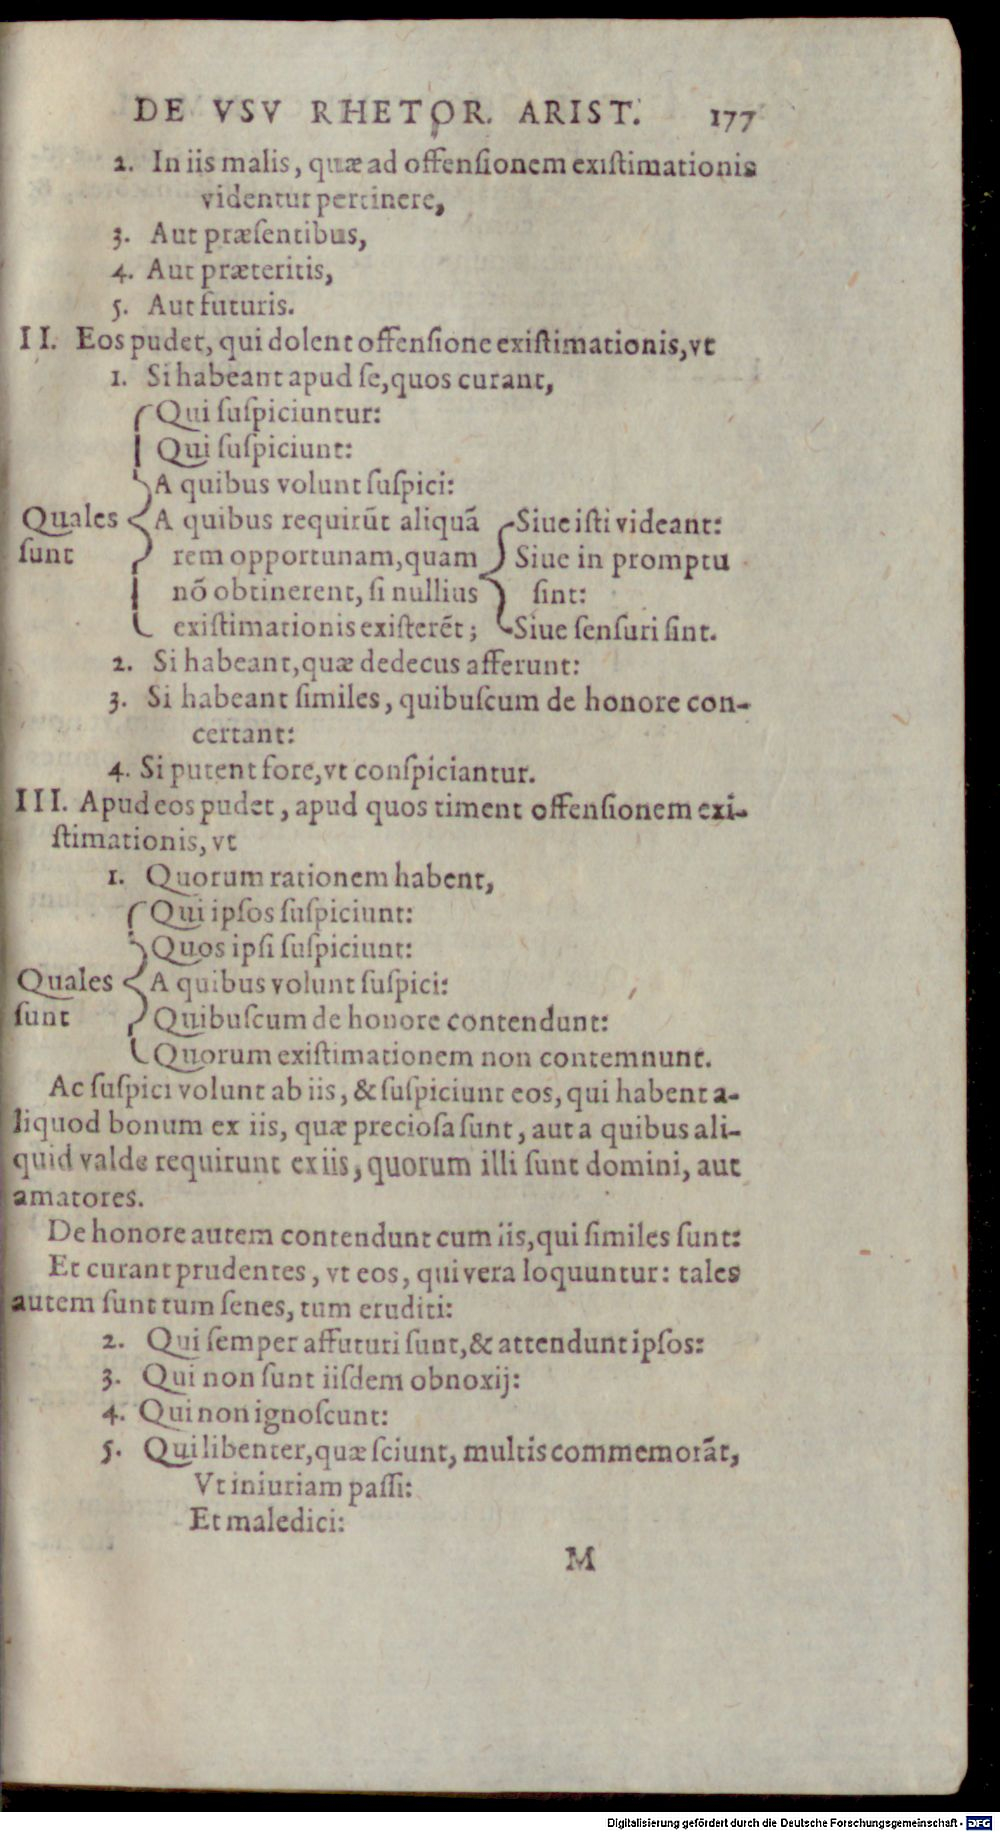 DE VSV RHETOR. ARIST. 177
2. In iis malis, quæ ad offenſionem exiſtimationis
videntur pertinere,
3. Aut præſentibus,
4. Aut præteritis,
5. Aut futuris.
II. Eos pudet, qui dolent offenſione exiſtimationis, vt
1. Si habeant apud ſe, quos curant,
Qui ſuſpiciuntur:
Qui ſuſpiciunt:
A quibus volunt ſuſpici:
Quales sunt
A quibus requirūt aliquā
rem opportunam, quam
nō obtinerent, ſi nullius
exiſtimationis exiſterēt;
Siue iſti videant:
Siue in promptu
ſint:
Siue ſenſuri ſint.
2. Si habeant, quæ dedecus afferunt:
3. Si habeant ſimiles, quibuſcum de honore con-
certant:
4. Si putent fore, vt conſpiciantur.
III. Apud eos pudet, apud quos timent offenſionem exi-
ſtimationis, vt
1. Quorum rationem habent,
Qui ipſos ſuſpiciunt:
Quos ipſi ſuſpiciunt:
Quales ſunt
A quibus volunt ſuſpici:
Quibuſcum de honore contendunt:
Quorum exiſtimationem non contemnunt.
Ac ſuſpici volunt ab iis, & ſuſpiciunt eos, qui habent a-
liquod bonum ex iis, quæ precioſa ſunt, aut a quibus ali-
quid valde requirunt ex iis, quorum illi ſunt domini, aut
amatores.
De honore autem contendunt cum iis, qui ſimiles ſunt:
Et curant prudentes, vt eos, qui vera loquuntur: tales
autem ſunt tum ſenes, tum eruditi:
2. Qui ſemper affuturi ſunt, & attendunt ipſos:
3. Qui non ſunt iiſdem obnoxij:
4. Qui non ignoſcunt:
5. Qui libenter, quæ ſciunt, multis commemorāt,
Vt iniuriam paſſi:
Et maledici:
M
Digitalisierung gefördert durch die Deutsche Forschungsgemeinschaft - DFG